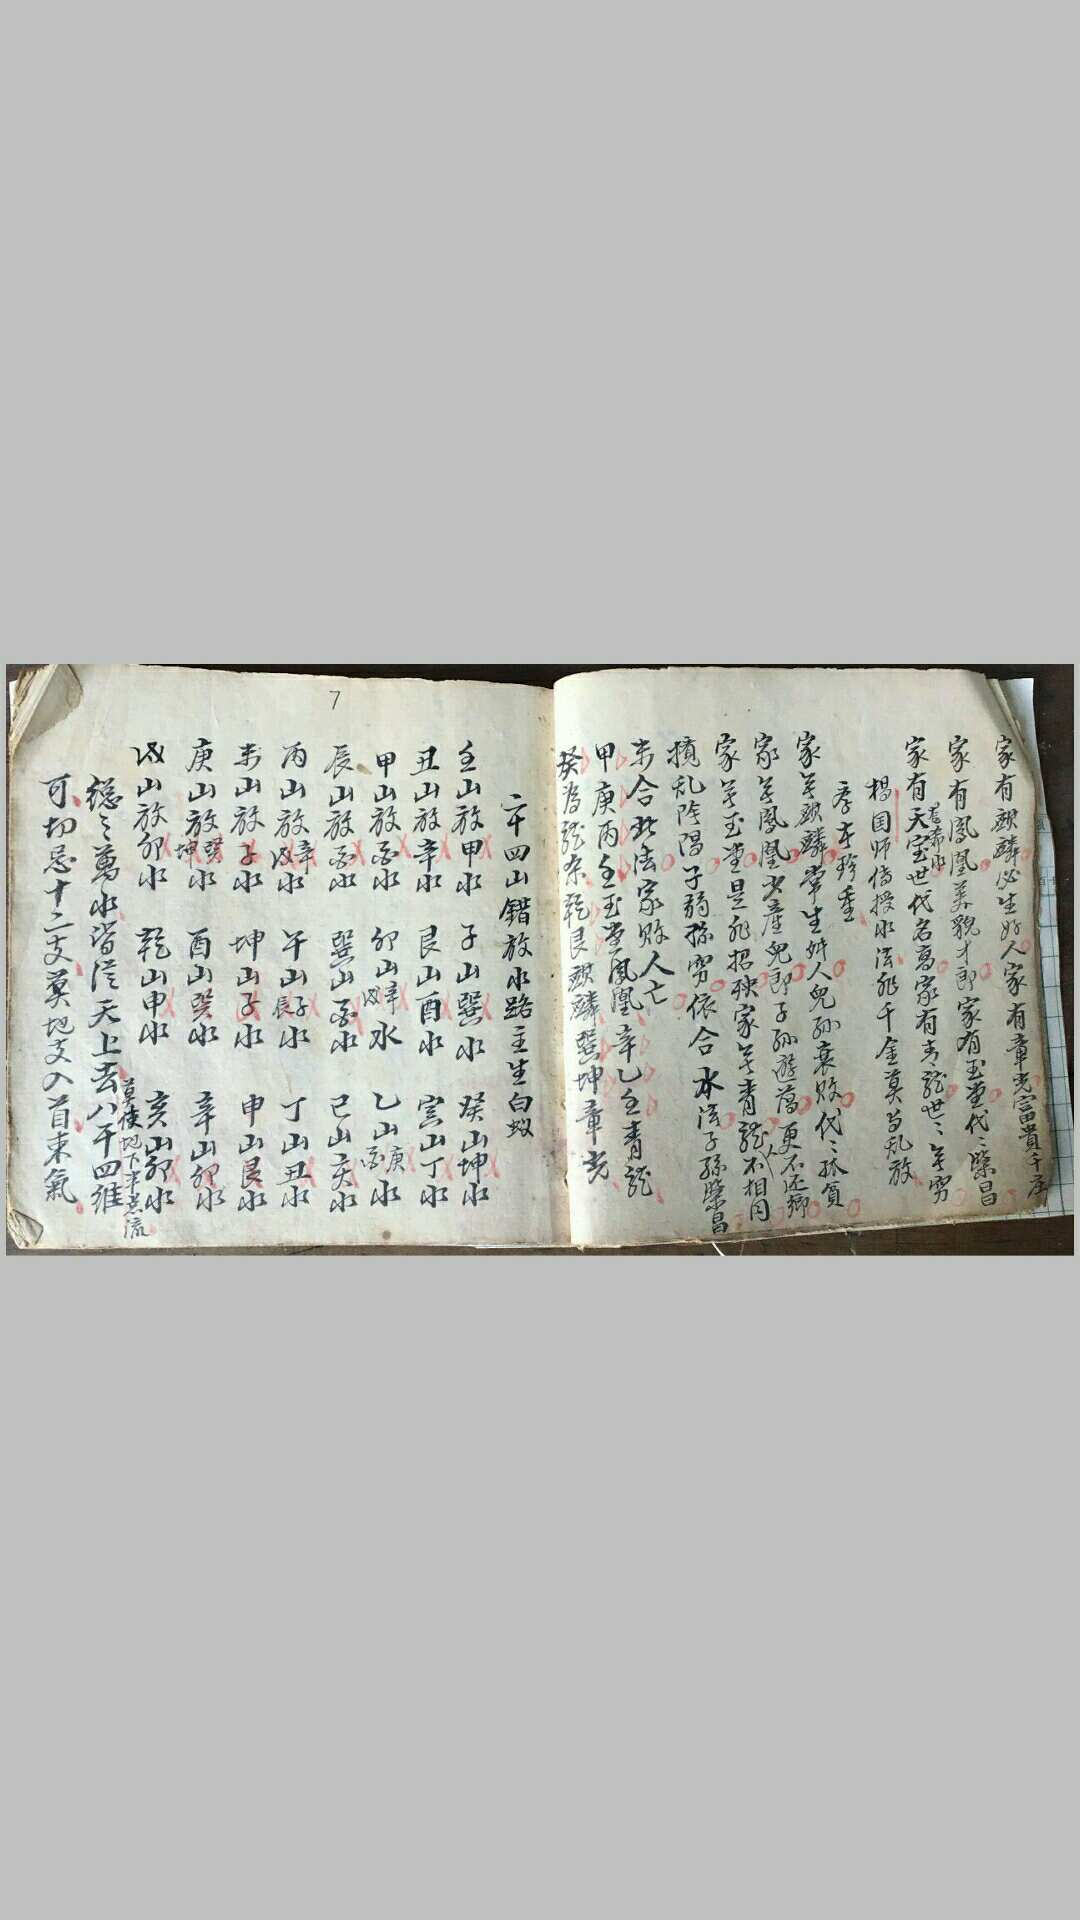 家有麒麟必生好人家有章光富貴千序
家有鳳凰美貌才郎家有玉堂代〻榮昌
家有天宝世代名髙家有青龍世〻無窮
楊国師傳授水法非千金莫与乱放
孝本珍重
家無麒麟常生奸人兒孙衰敗代〻孤貧
家無鳳凰少產兒郎子孙遊蕩更不还鄉
家無玉堂是非招殃家無青龍不相同
撓乱陰陽子弱孫窮依合水法子孫榮昌
未合此法家敗人亡
甲庚丙壬玉堂鳳凰辛乙全青龍
癸為龍桼乾艮麒麟巽坤章光
7
二十四山錯放水路主生白蚁
壬山放甲水 子山巽水 癸山坤水
丑山放辛水 艮山酉水 寅山丁水
甲山放丙水 卯山辛戌水 乙山庚丙水
辰山放丙水 巽山丙水 巳山亥水
丙山放辛戌水 午山子辰水 丁山丑水
未山放子水 坤山子水 申山艮水
庚山放癸坤水 酉山癸水 辛山卯水
戌山放卯水 乾山申水 亥山卯水
總之萬水皆從天上去八干四維
莫使地下半点流
可切忌十二支莫地支入首来氣